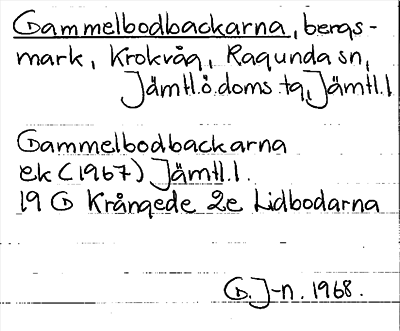 Gammelbodbackarna, bergs-
mark, Krokvåg, Ragunda sn,
Jämtl.ö.doms.tg, Jämtl.l
Gammelbodbackarna
ek (1967) Jämtl.l.
19 G Krångede 2e Lidbodarna
G. J-n. 1968.